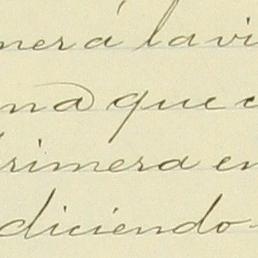 nera la vi
na que c
rimera en
diciendo